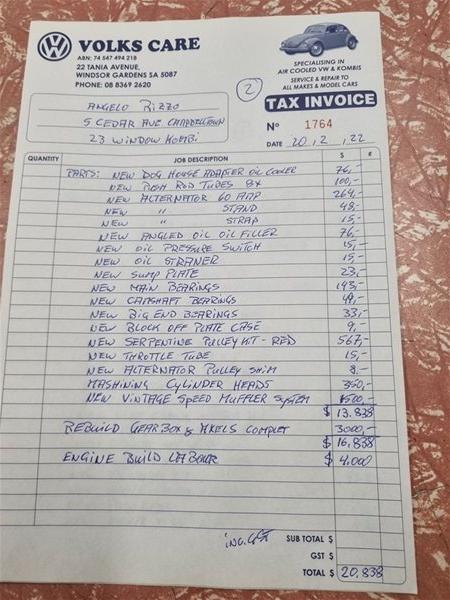 VW VOLKS CARE
ABN: 74 547 494 218
22 TANIA AVENUE,
WINDSOR GARDENS SA 5087
PHONE: 08 8369 2620
SPECIALISING IN
AIR COOLED VW & KOMBIS
SERVICE & REPAIR TO
ALL MAKES & MODEL CARS
2
TAX INVOICE
ANGELO RIZZO
5 CEDAR AVE CAMPBELLTOWN
23 WINDOW KOMBI
No 1764
DATE 20.2.22
QUANTITY JOB DESCRIPTION $ ¢
PARTS: NEW DOG HOUSE ADAPTER OIL COOLER 76,-
NEW PUSH ROD TUBES 8X 100,-
NEW ALTERNATOR 60 AMP 269,-
NEW " STAND 48,-
NEW " STRAP 15,-
NEW ANGLED OIL OIL FILLER 76,-
NEW OIL PRESSURE SWITCH 15,-
NEW OIL STRANER 15,-
NEW SUMP PLATE 23,-
NEW MAIN BEARINGS 143,-
NEW CAMSHAFT BEARINGS 49,-
NEW BIG END BEARINGS 33,-
NEW BLOCK OFF PLATE CASE 9,-
NEW SERPENTINE PULLEY KIT - RED 567,-
NEW THROTTLE TUBE 15,-
NEW ALTERNATOR PULLEY SHIM 8,-
MASHINING CYLINDER HEADS 350,-
NEW VINTAGE SPEED MUFFLER SYSTEM 1500,-
$ 13.838
REBUILD GEARBOX & AXELS COMPLET 3000,-
$ 16,838
ENGINE BUILD LABOUR $ 4.000
inc. GST SUB TOTAL $
GST $
TOTAL $ 20,838